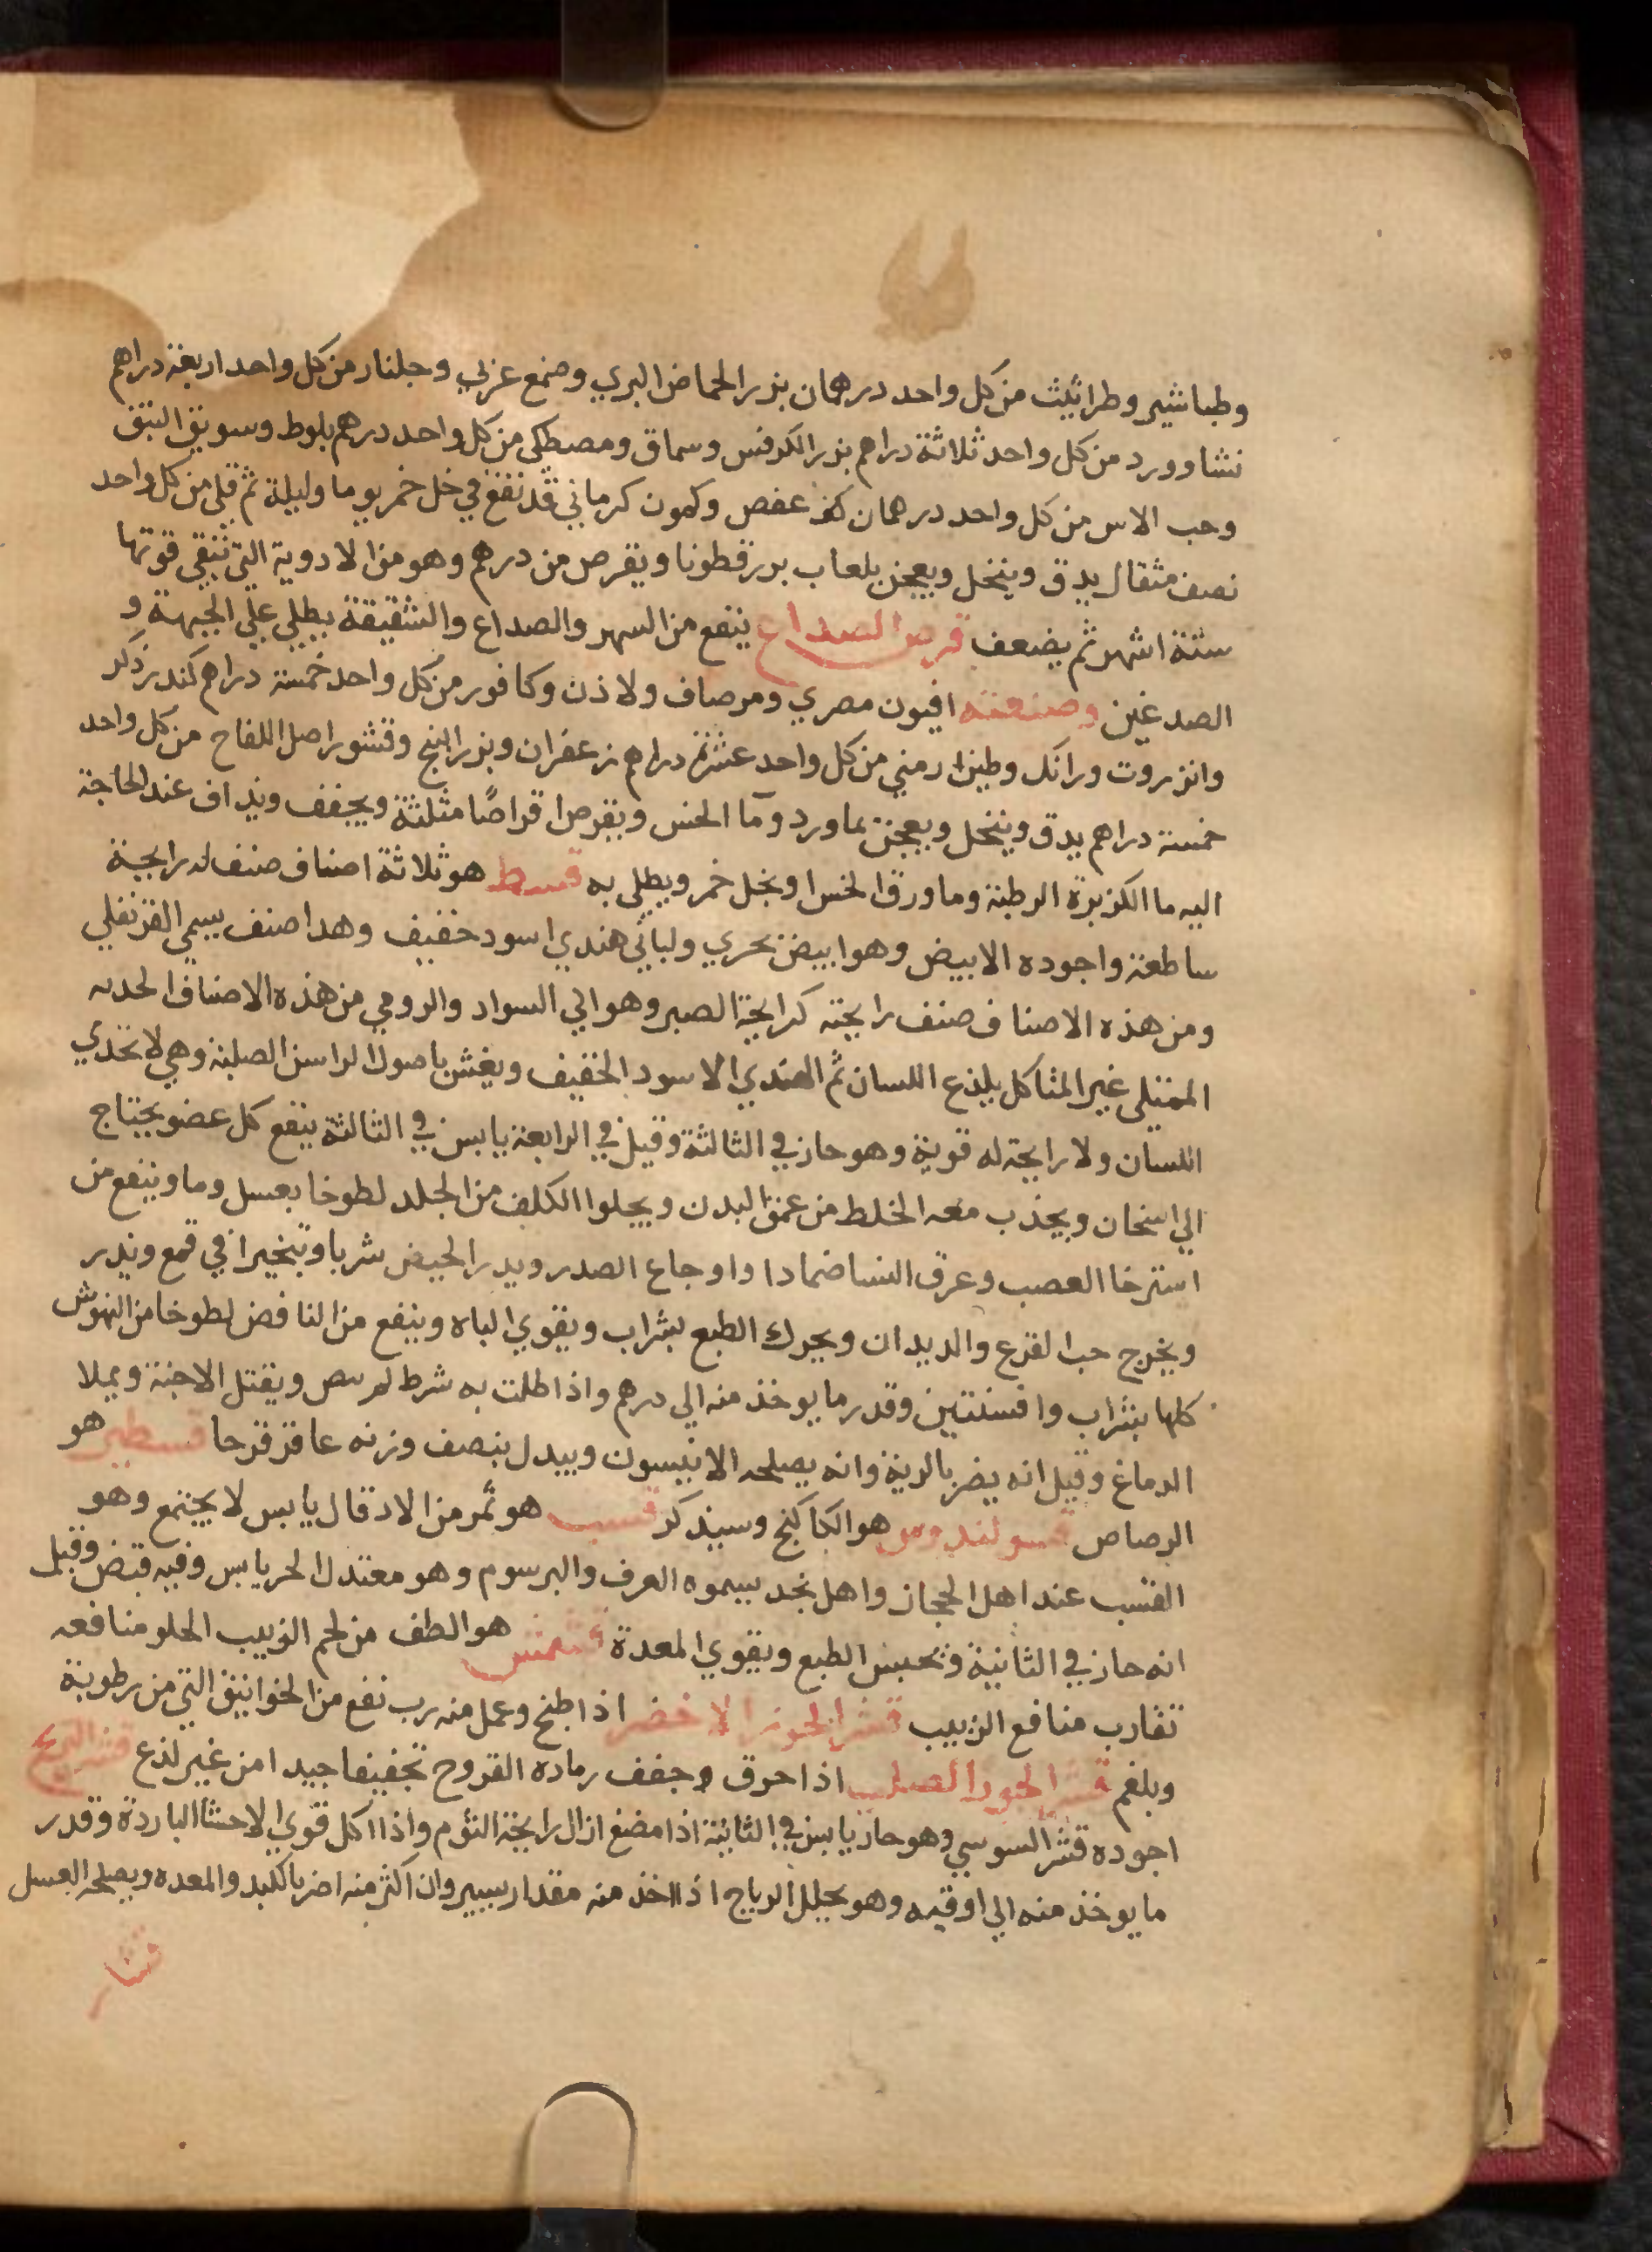 وطباشير وطراثيث من كل واحد درهمان بزر الحماض البري وصمغ عربي وجلنار من كل واحد اربعة دراهم
نشا وورد من كل واحد ثلاثة دراهم بزر الكرفس وسماق ومصطكى من كل واحد درهم بلوط وسويق النبق
وحب الاس من كل واحد درهمان عفص وكمون كرماني قد نقع في خل خمر يوما وليلة ثم قلي من كل واحد
نصف مثقال يدق وينخل ويعجن بلعاب بزر قطونا ويقرص من درهم وهو من الادوية التي تبقى قوتها
ستة اشهر ثم يضعف قرص الصداع ينفع من السهر والصداع والشقيقة يطلي علي الجبهة و
الصدغين وصنعته افيون مصري ومر صاف ولاذن وكافور من كل واحد خمسة دراهم كندر ذكر
وانزروت ورانك وطين ارمني من كل واحد عشرة دراهم زعفران وبزر البنج وقشور اصل اللفاح من كل واحد
خمسة دراهم يدق وينخل ويعجن بماورد وما الخس ويقرص اقراصًا مثلثة ويجفف ويداف عند الحاجة
اليه ما الكزبرة الرطبة وما ورق الخس او بخل خمر ويطلى به قسط هو ثلاثة اصناف صنف له رايحة
ساطعة واجوده الابيض وهو ابيض بحري ولباني هندي اسود خفيف وهدا صنف يسمي القرنفلي
ومن هذه الاصناف صنف رايحته كرايحة الصبر وهو الي السواد والرومي من هذه الاصناف الحديه
الممتلي غير المتاكل يلذع اللسان ثم الهندي الاسود الخفيف ويغش باصول الراسن الصلبة وهي لا تحذي
اللسان ولا رايحة له قوية وهو حار في الثالثة وقيل في الرابعة يابس في الثالثة ينفع كل عضو يحتاج
الي اسخان ويجذب معه الخلط من عمق البدن ويجلوا الكلف من الجلد لطوخا بعسل وما وينفع من
استرخا العصب وعرق النسا ضمادا واوجاع الصدر ويدر الحيض شربا وتبخيرا في قمع ويدر
ويخرج حب القرع والديدان ويحرك الطبع بشراب ويقوي الباه وينفع من النافض لطوخا من النهوش
كلها بشراب وافسنتين وقدر ما يوخذ منه الي درهم واذا طلت به شرط لم ويقتل الاجنة ويملا
الدماغ وقيل انه يضر بالرية وانه يصلحه الانيسون ويبدل بنصف وزنه عاقر قرحا قسطير هو
الرصاص قسولندومر هو الكاكنج وسيذكر قسب هو ثمر من الادقال يابس لا يجتمع وهو
القسب عند اهل الحجاز واهل نجد يسموه العرف والبرسوم وهو معتدل الحر يابس وفيه قبض وقيل
انه حار في الثانية وتحبس الطبع ويقوي المعدة قشمش هو الطف من لحم الزبيب الحلو منافعه
تقارب منافع الزبيب قشر الجوز الاخضر اذا طبخ وعمل منه رب نفع من الخوانيق التي من رطوبة
وبلغم قشر الجوز الصلب اذا احرق وجفف رماده القروح تجفيفا جيدا من غير لذع قشر الترنج
اجوده قشر السوسي وهو حار يابس في الثانية اذا مضغ ازال رايحة الثوم واذا اكل قوي الاحشا الباردة وقدر
ما يوخذ منه الي اوقيه وهو يحلل الرياح اذا اخذ منه مقدار يسير وان اكثر منه اضر بالكبد والمعده ويصلحه العسل
قشار